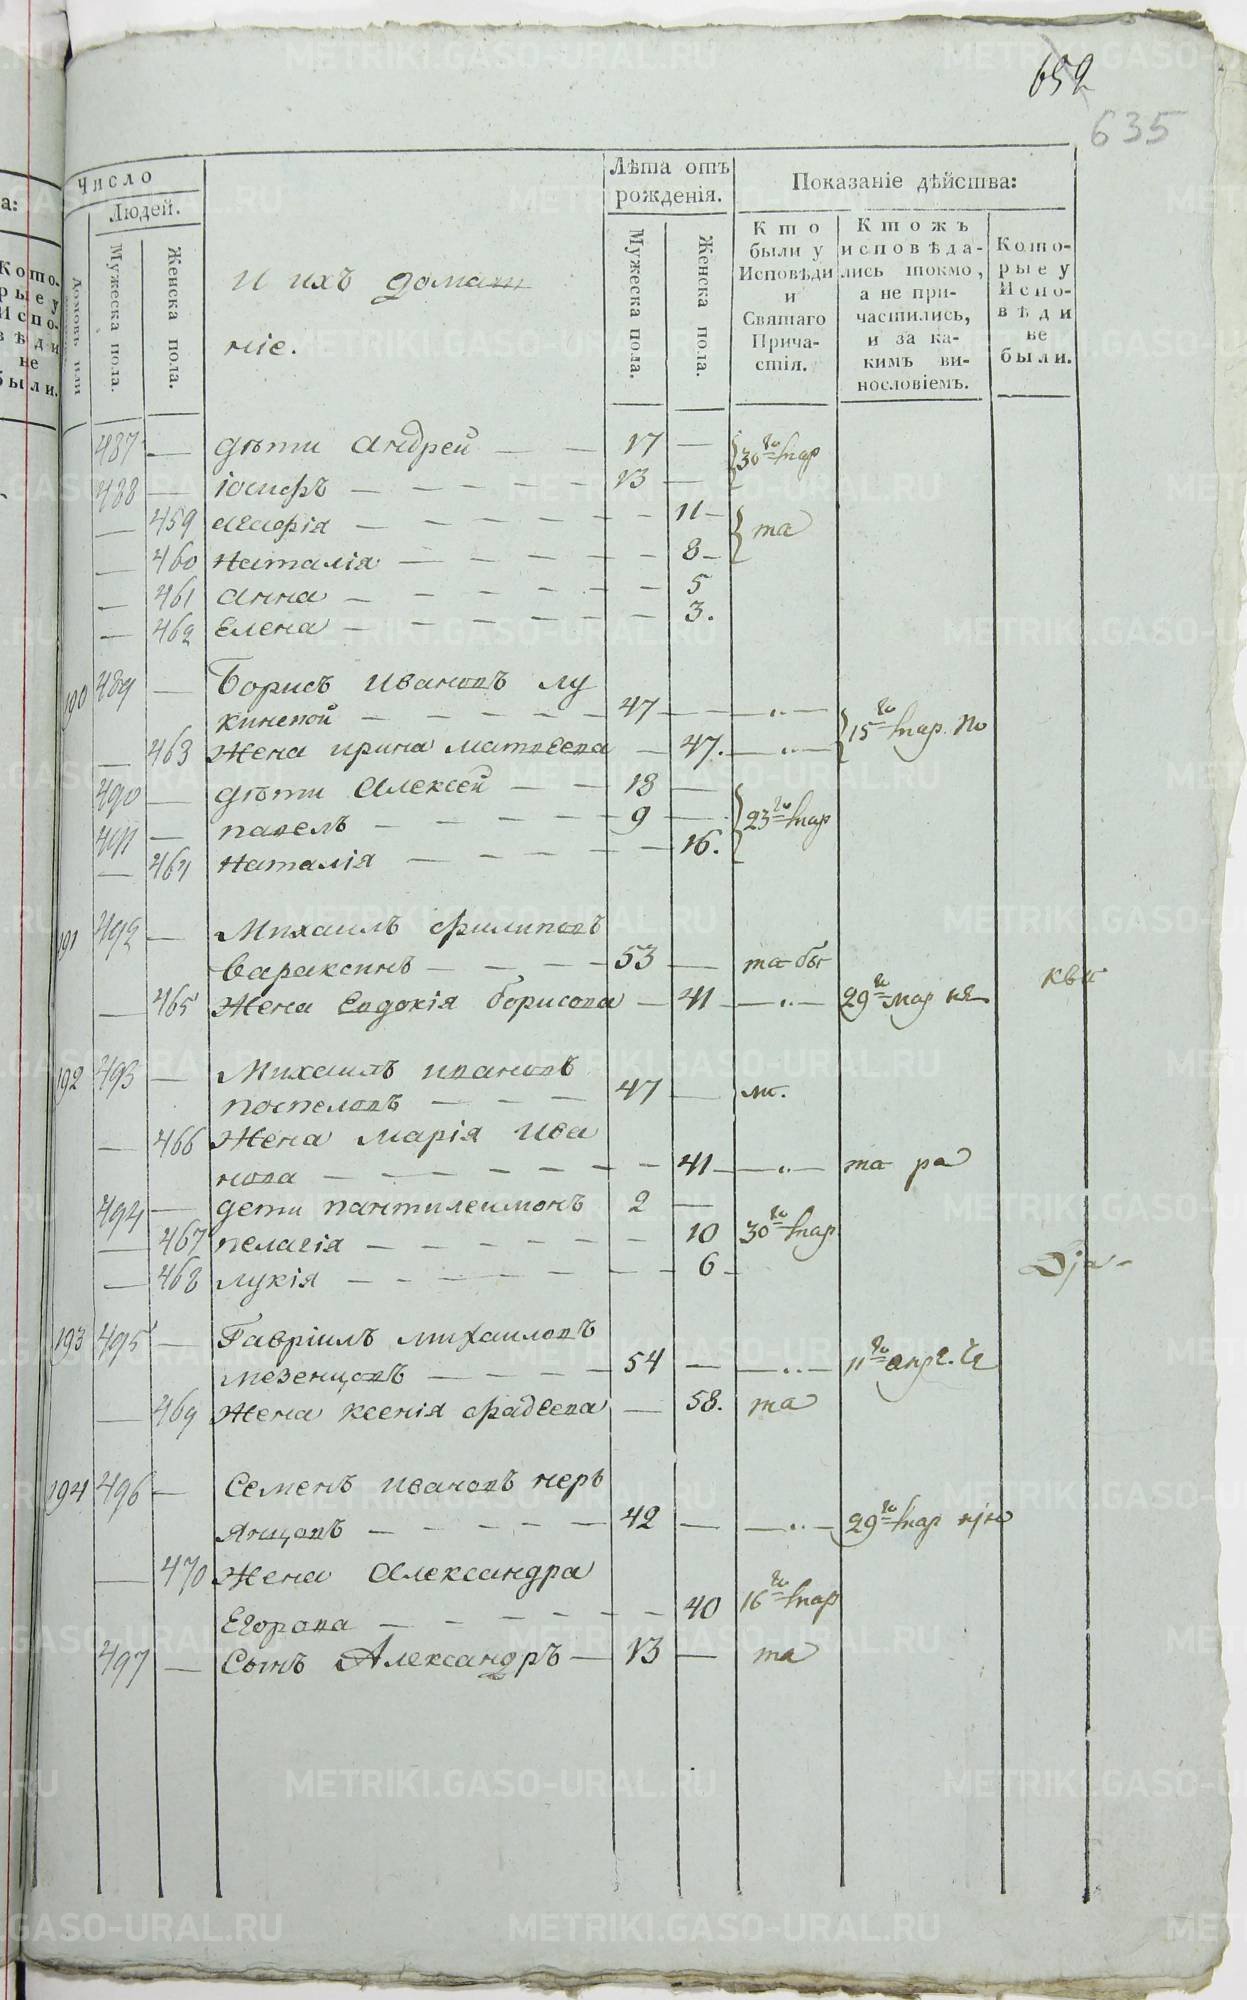 652
635
Число
Людей.
Лѣта отъ рожденія.
Показаніе дѣйства:
домовъ или
Мужеска пола.
Женска пола.
и ихъ домаш
ніе.
Мужеска пола.
Женска пола.
Кто были у Исповѣди и Святаго Прича-стія.
Ктожъ исповѣда-лись токмо, а не при-частились, и за ка-кимъ ви-нословіемъ.
Кото-рые у Испо-вѣди не были.
487 — дѣти Андрей — — 17 — 30го мар
488 — іосифъ — — — — — 13 —
— 459 — — — — — 11 — та
— 460 Наталія — — — — — 8 —
— 461 анна — — — — — 5
— 462 Елена — — — — — 3.
190 489 — Борисъ Ивановъ лу
кинской — — — — 47 — —„— 15го мар. по
— 463 Жена ирина матвеева — 47. —„—
490 — дѣти Алексей — — 18 —
491 — павелъ — — — — 9 — 23го мар
— 464 Наталія — — — — — 16.
191 492 — Михаилъ филиповъ
вараксинъ — — — — 53 — та
— 465 Жена Евдокія борисова — 41 —„— 29го мар
192 493 — Михаилъ ивановъ
поспеловъ — — — 47 —
— 466 Жена марія ива
нова — — — — — — 41 —„— та ра
494 — дети пантилеимонъ 2 —
— 467 пелагія — — — — — — 10 30го мар
— 468 лукія — — — — — — 6 —
193 495 — Гавріилъ михаиловъ
мезенцовъ — — — — 54 — —„— 11го апр.
— 469 Жена ксенія фадеева — 58. та
194 496 — Семенъ ивановъ черь
янцовъ — — — — — 42 — —„— 29го мар
— 470 Жена Александра
Егорова — — — — — 40 16го мар
497 — Сынъ Александръ — 13 — та
METRIKI.GASO-URAL.RU